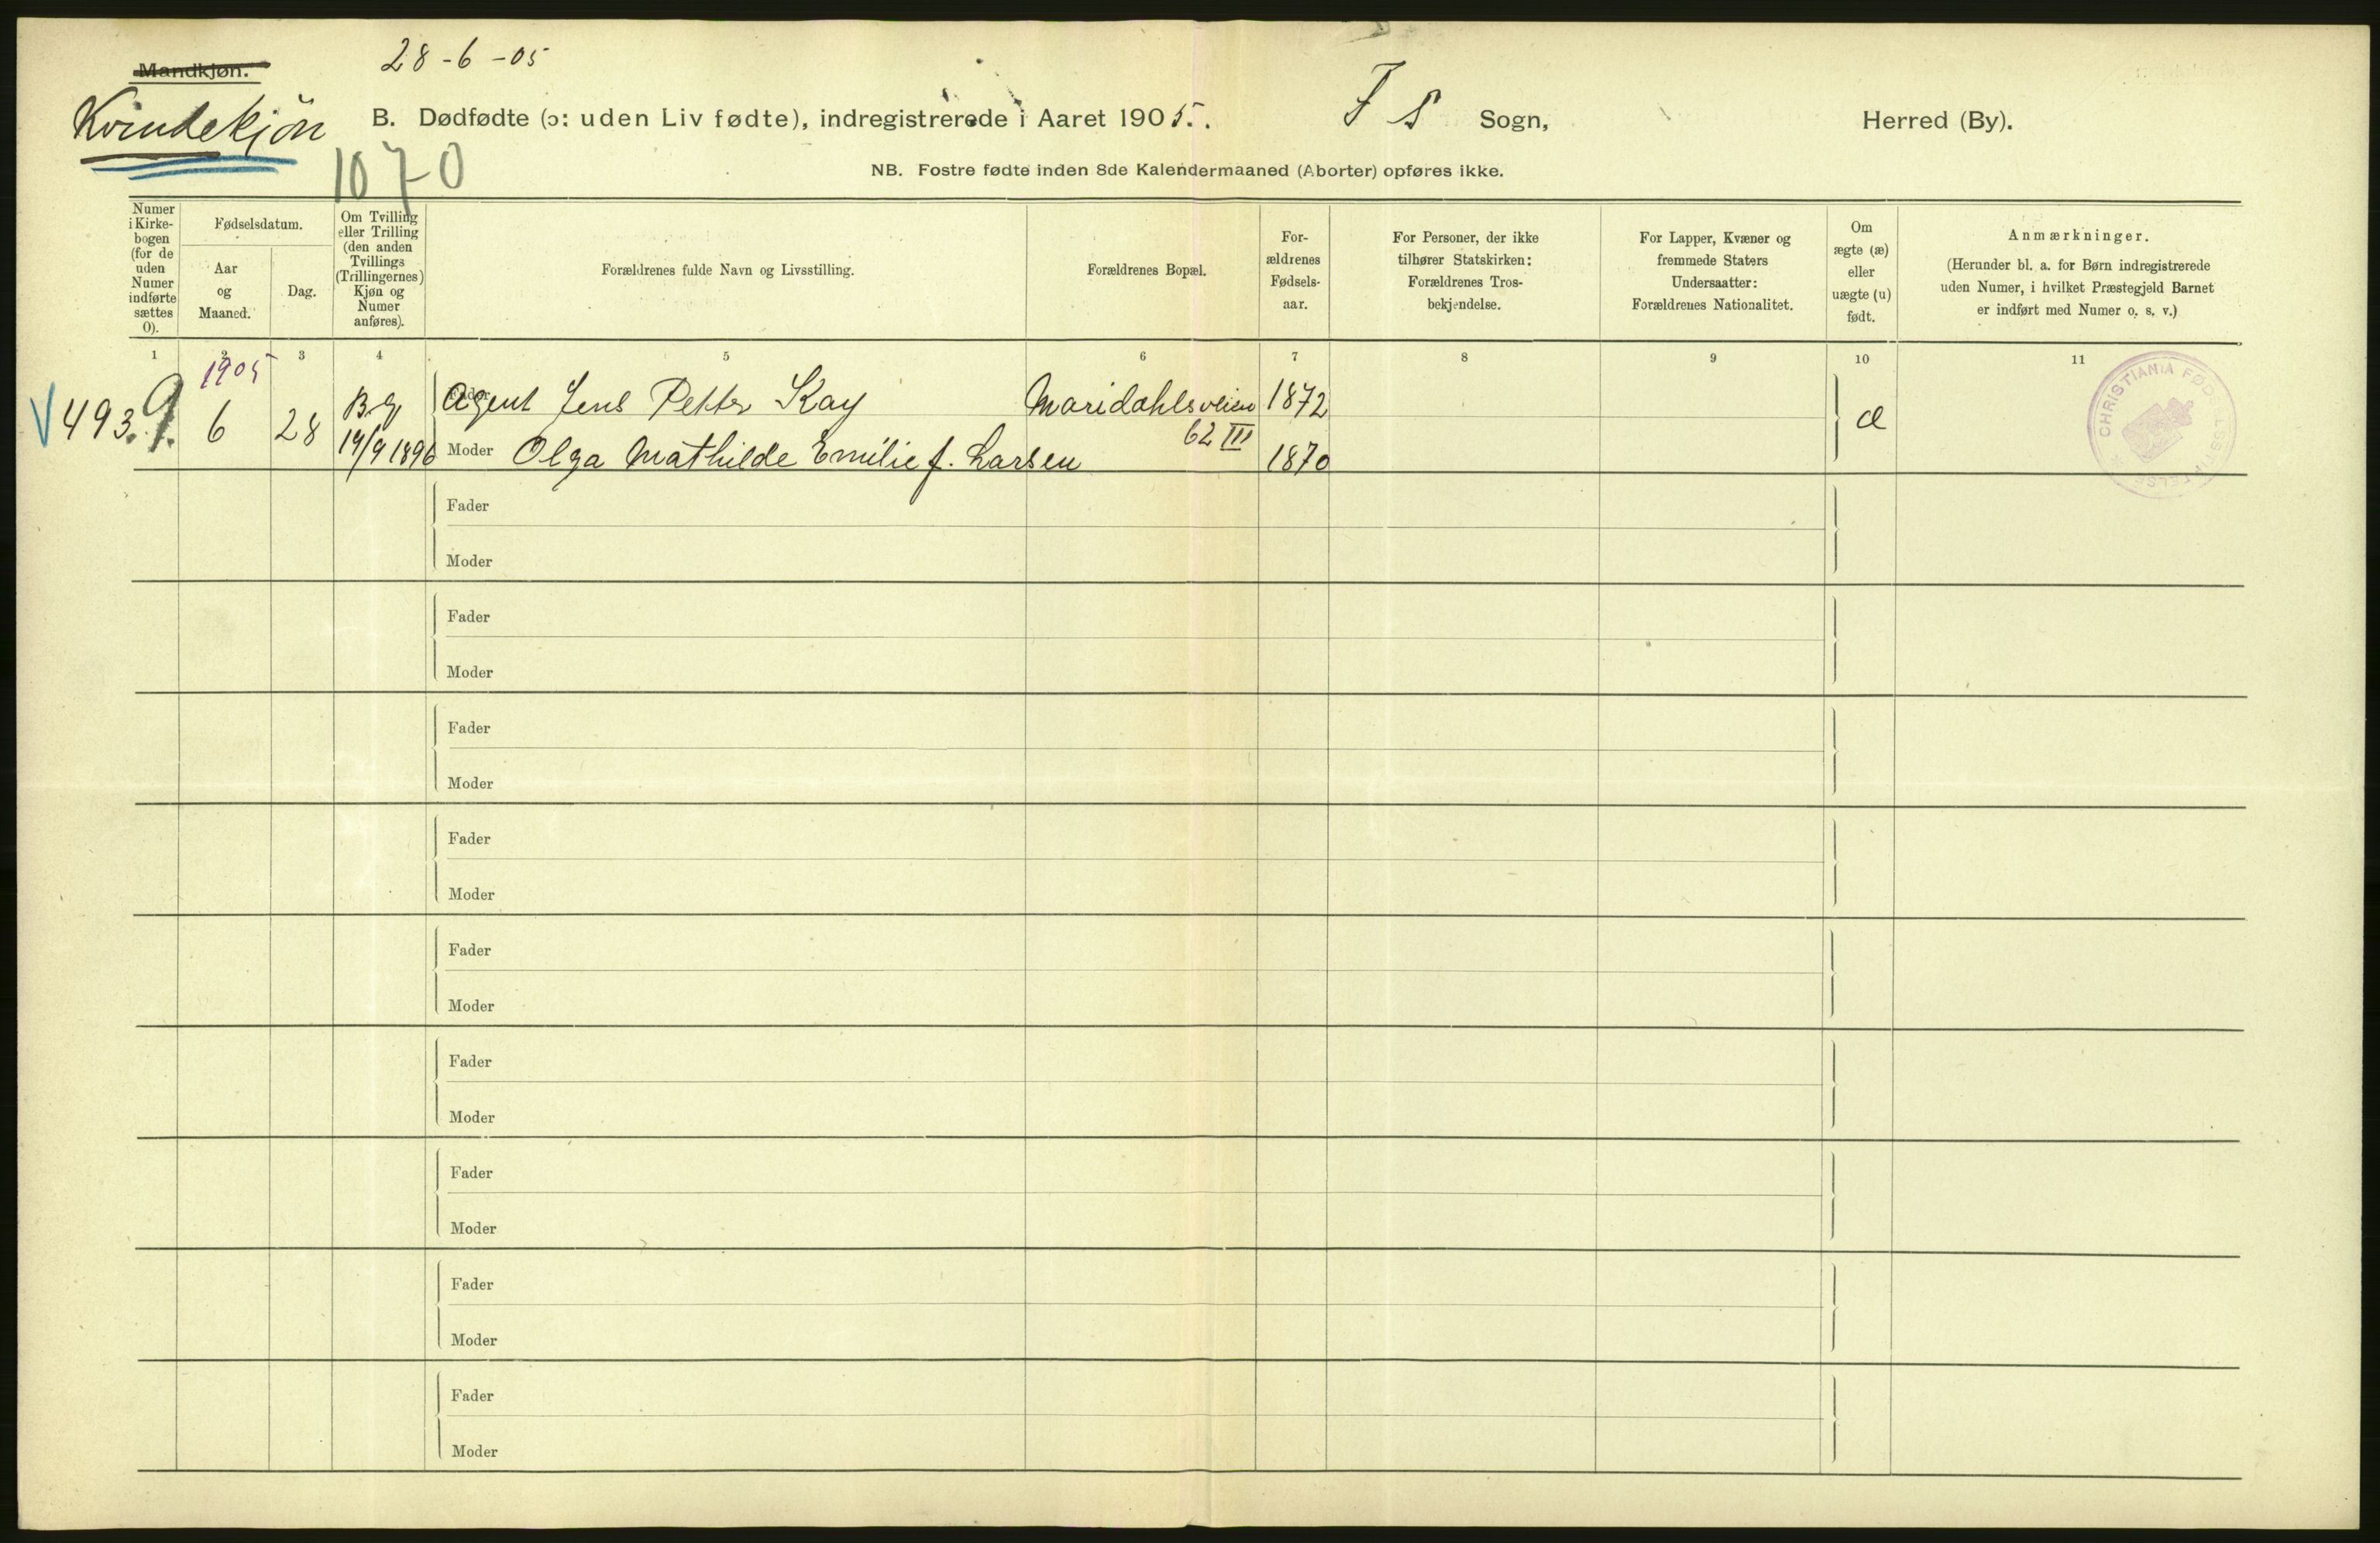 28-6-05
Mandkjøn.
Kvindekjön
B. Dødfødte (ɔ: uden Liv fødte), indregistrerede i Aaret 1905. F S Sogn, Herred (By).
1070
NB. Fostre fødte inden 8de Kalendermaaned (Aborter) opføres ikke.
Numer i Kirke-bogen (for de uden Numer indførte sættes 0).
Fødselsdatum.
Aar og Maaned.
Dag.
Om Tvilling eller Trilling (den anden Tvillings (Trillingernes) Kjøn og Numer anføres).
Forældrenes fulde Navn og Livsstilling.
Forældrenes Bopæl.
For-ældrenes Fødsels-aar.
For Personer, der ikke tilhører Statskirken: Forældrenes Tros-bekjendelse.
For Lapper, Kvæner og fremmede Staters Undersaatter: Forældrenes Nationalitet.
Om ægte (æ) eller uægte (u) født.
Anmærkninger.
(Herunder bl. a. for Børn indregistrerede uden Numer, i hvilket Præstegjeld Barnet er indført med Numer o. s. v.)
1 2 3 4 5 6 7 8 9 10 11
1905
493. 9. 6 28 Bg Fader Agent Jens Petter Kay Maridahlsveien 1872 æ
19/9 1896 Moder Olga Mathilde Emilie f. Larsen 62 III 1870
CHRISTIANIA FØDSELSSTIFTELSE
Fader
Moder
Fader
Moder
Fader
Moder
Fader
Moder
Fader
Moder
Fader
Moder
Fader
Moder
Fader
Moder
Fader
Moder